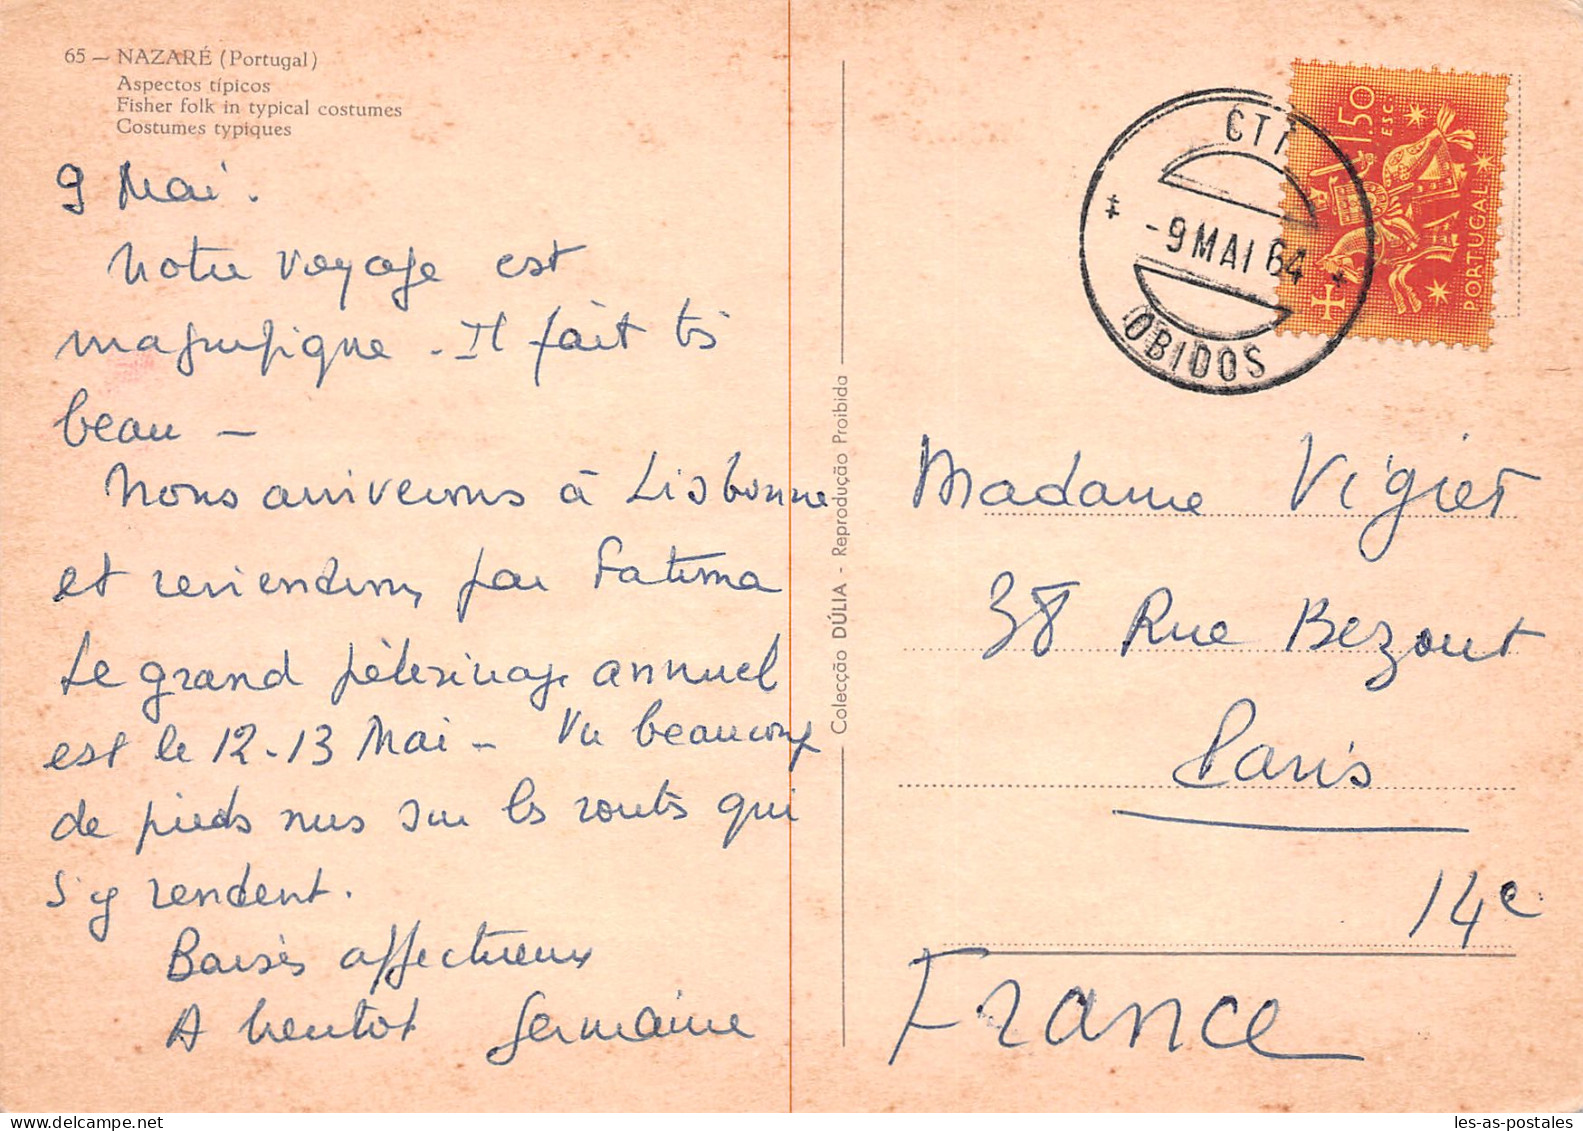 65 — NAZARÉ (Portugal)
Aspectos típicos
Fisher folk in typical costumes
Costumes typiques
9 Mai.
Notre voyage est
magnifique - Il fait très
beau -
Nous arriverons à Lisbonne
et reviendrons par Fatima
Le grand pèlerinage annuel
est le 12-13 Mai - Vu beaucoup
de pieds nus sur les routes qui
s'y rendent.
Baisers affectueux
A bientot Germaine
Colecção DÚLIA - Reprodução Proibida
CTT
-9 MAI 64
OBIDOS
1.50
ESC.
PORTUGAL
Madame Vigier
38 Rue Bezout
Paris
14e
France
les-as-postales